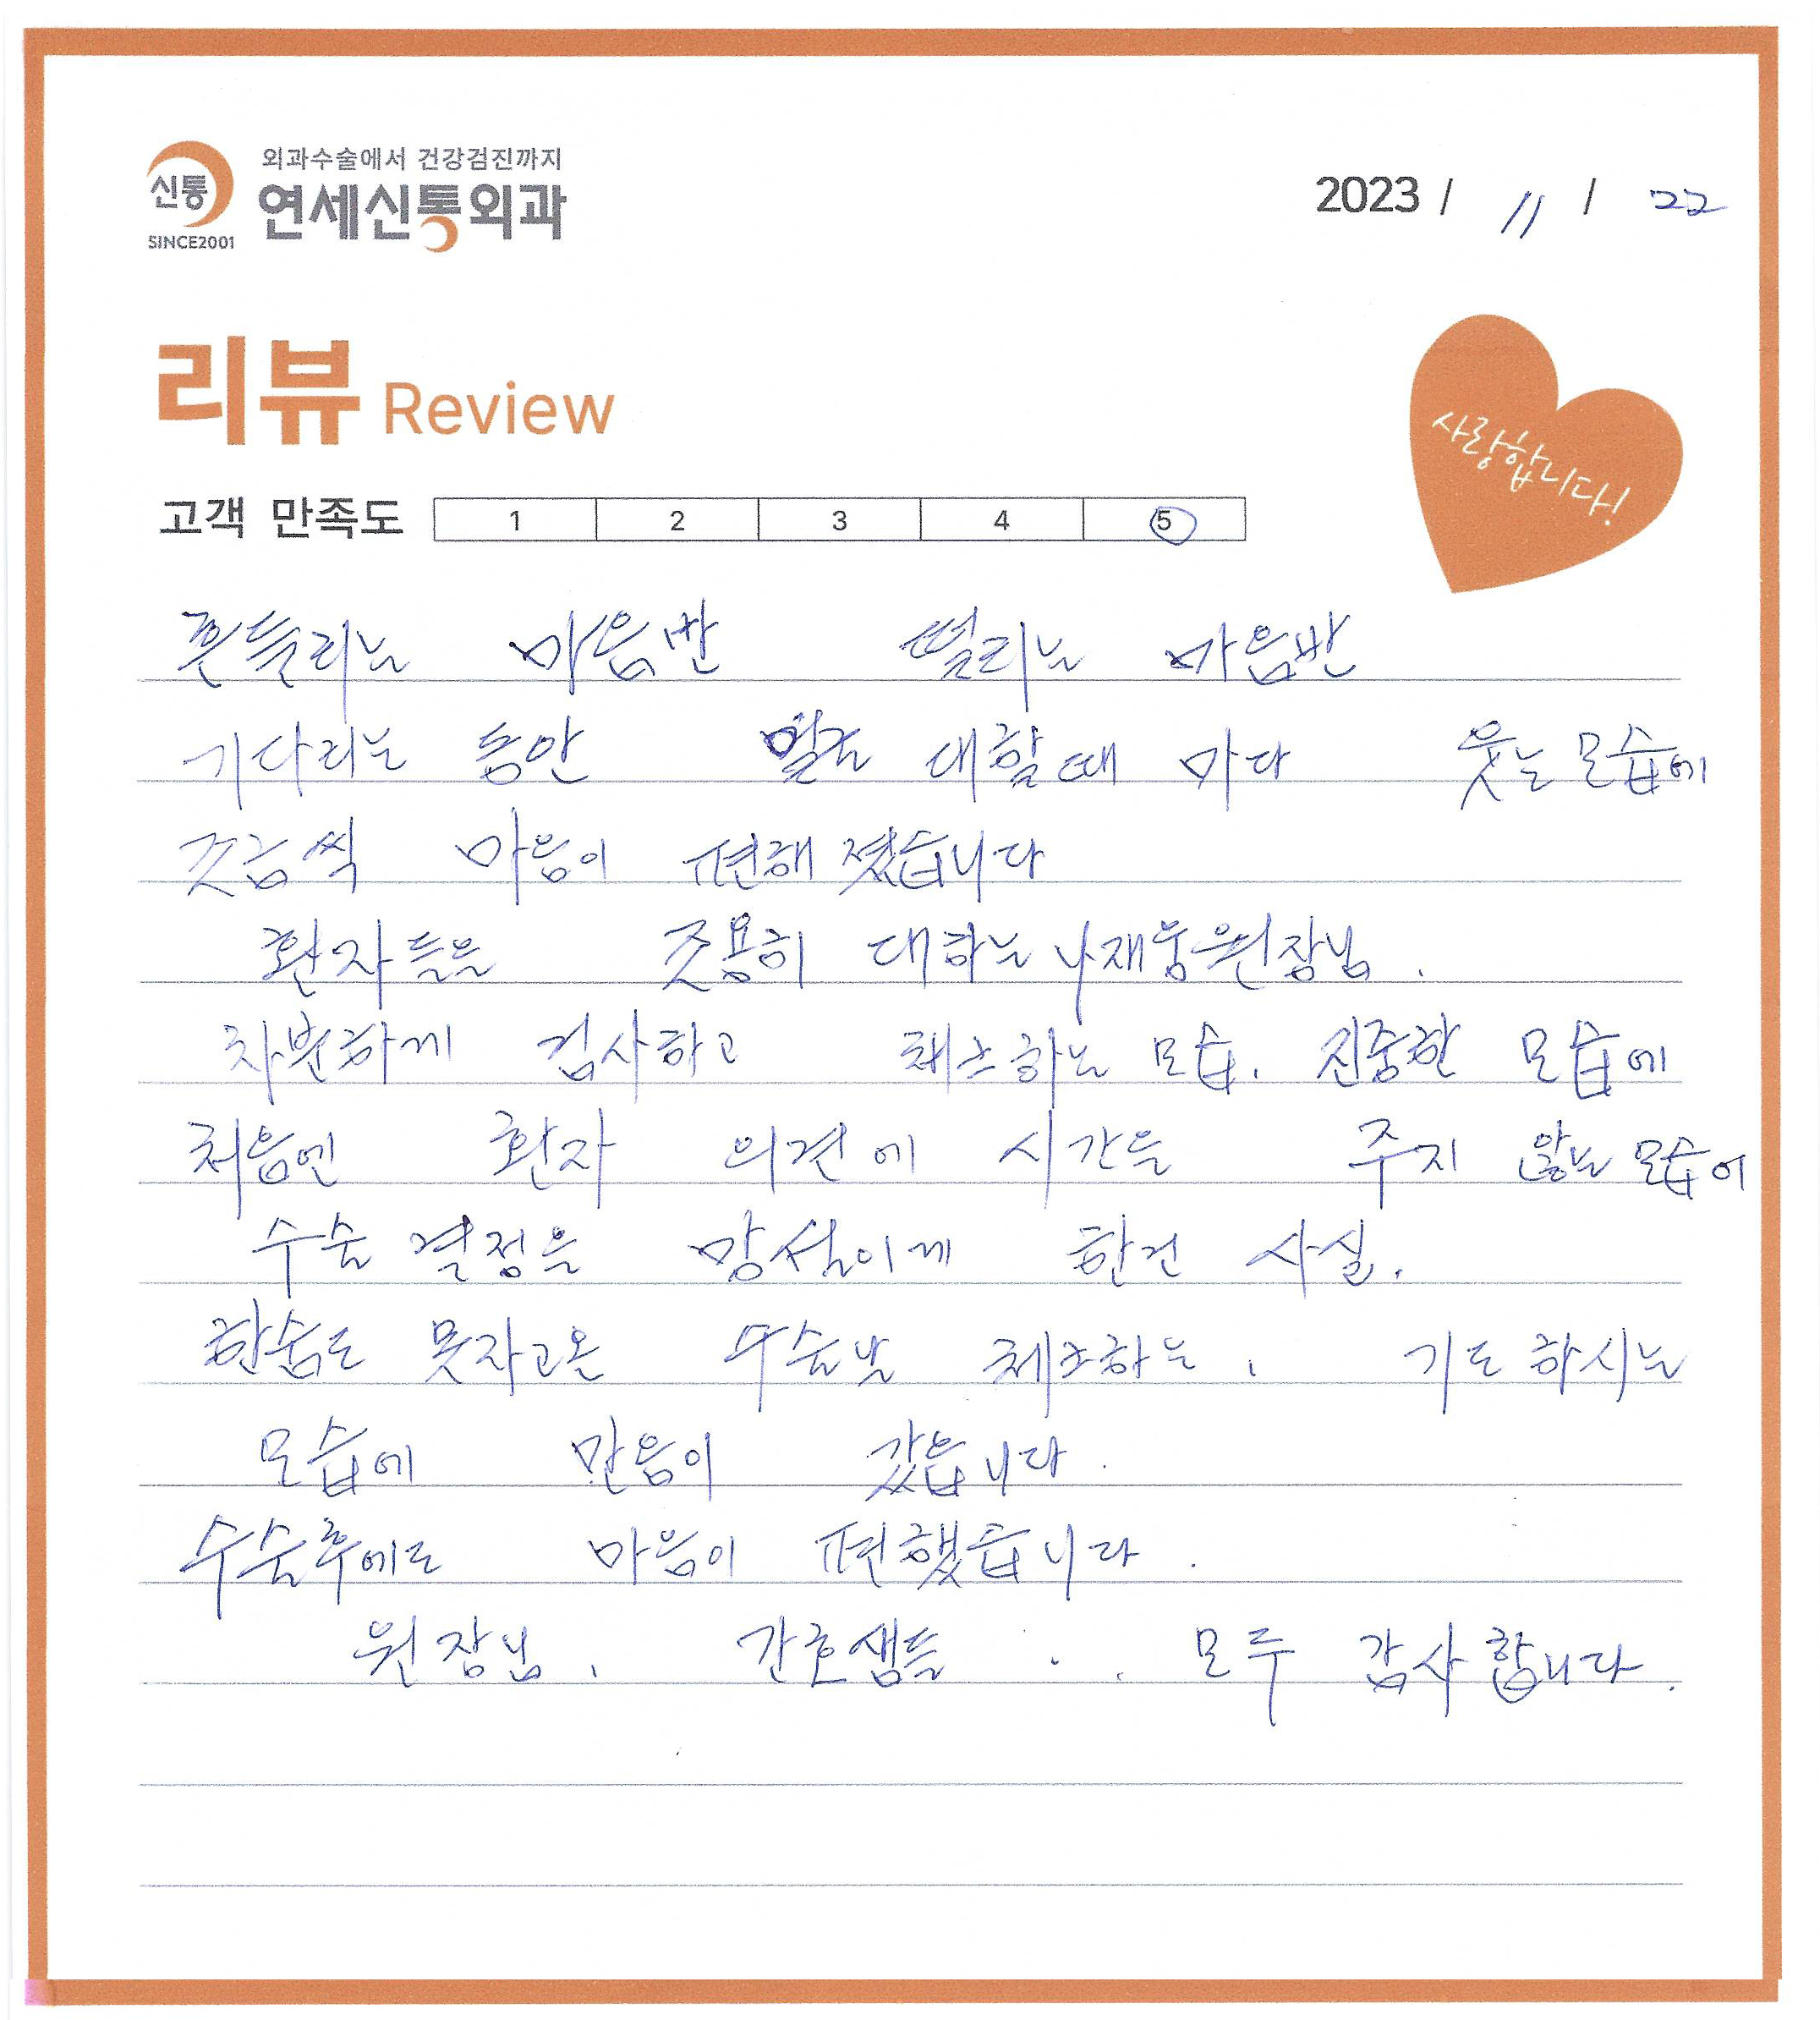 외과수술에서 건강검진까지
신통 연세신통외과
SINCE2001
2023 / 11 / 22
리뷰 Review
사랑합니다!
고객 만족도 1 2 3 4 5
흔들리는 마음반 떨리는 마음반
기다리는 동안 대할때 마다 웃는 모습에
조금씩 마음이 편해 졌습니다
환자들을 조용히 대하는 나재웅원장님.
차분하게 검사하고 체크하는 모습. 진중한 모습에
처음엔 환자 의견에 시간을 주지 않는 모습에
수술 결정을 망설이게 한건 사실.
한숨도 못자고온 수술날 체크하는, 기도하시는
모습에 믿음이 갔읍니다.
수술후에도 마음이 편했습니다.
원장님, 간호샘들.. 모두 감사합니다.